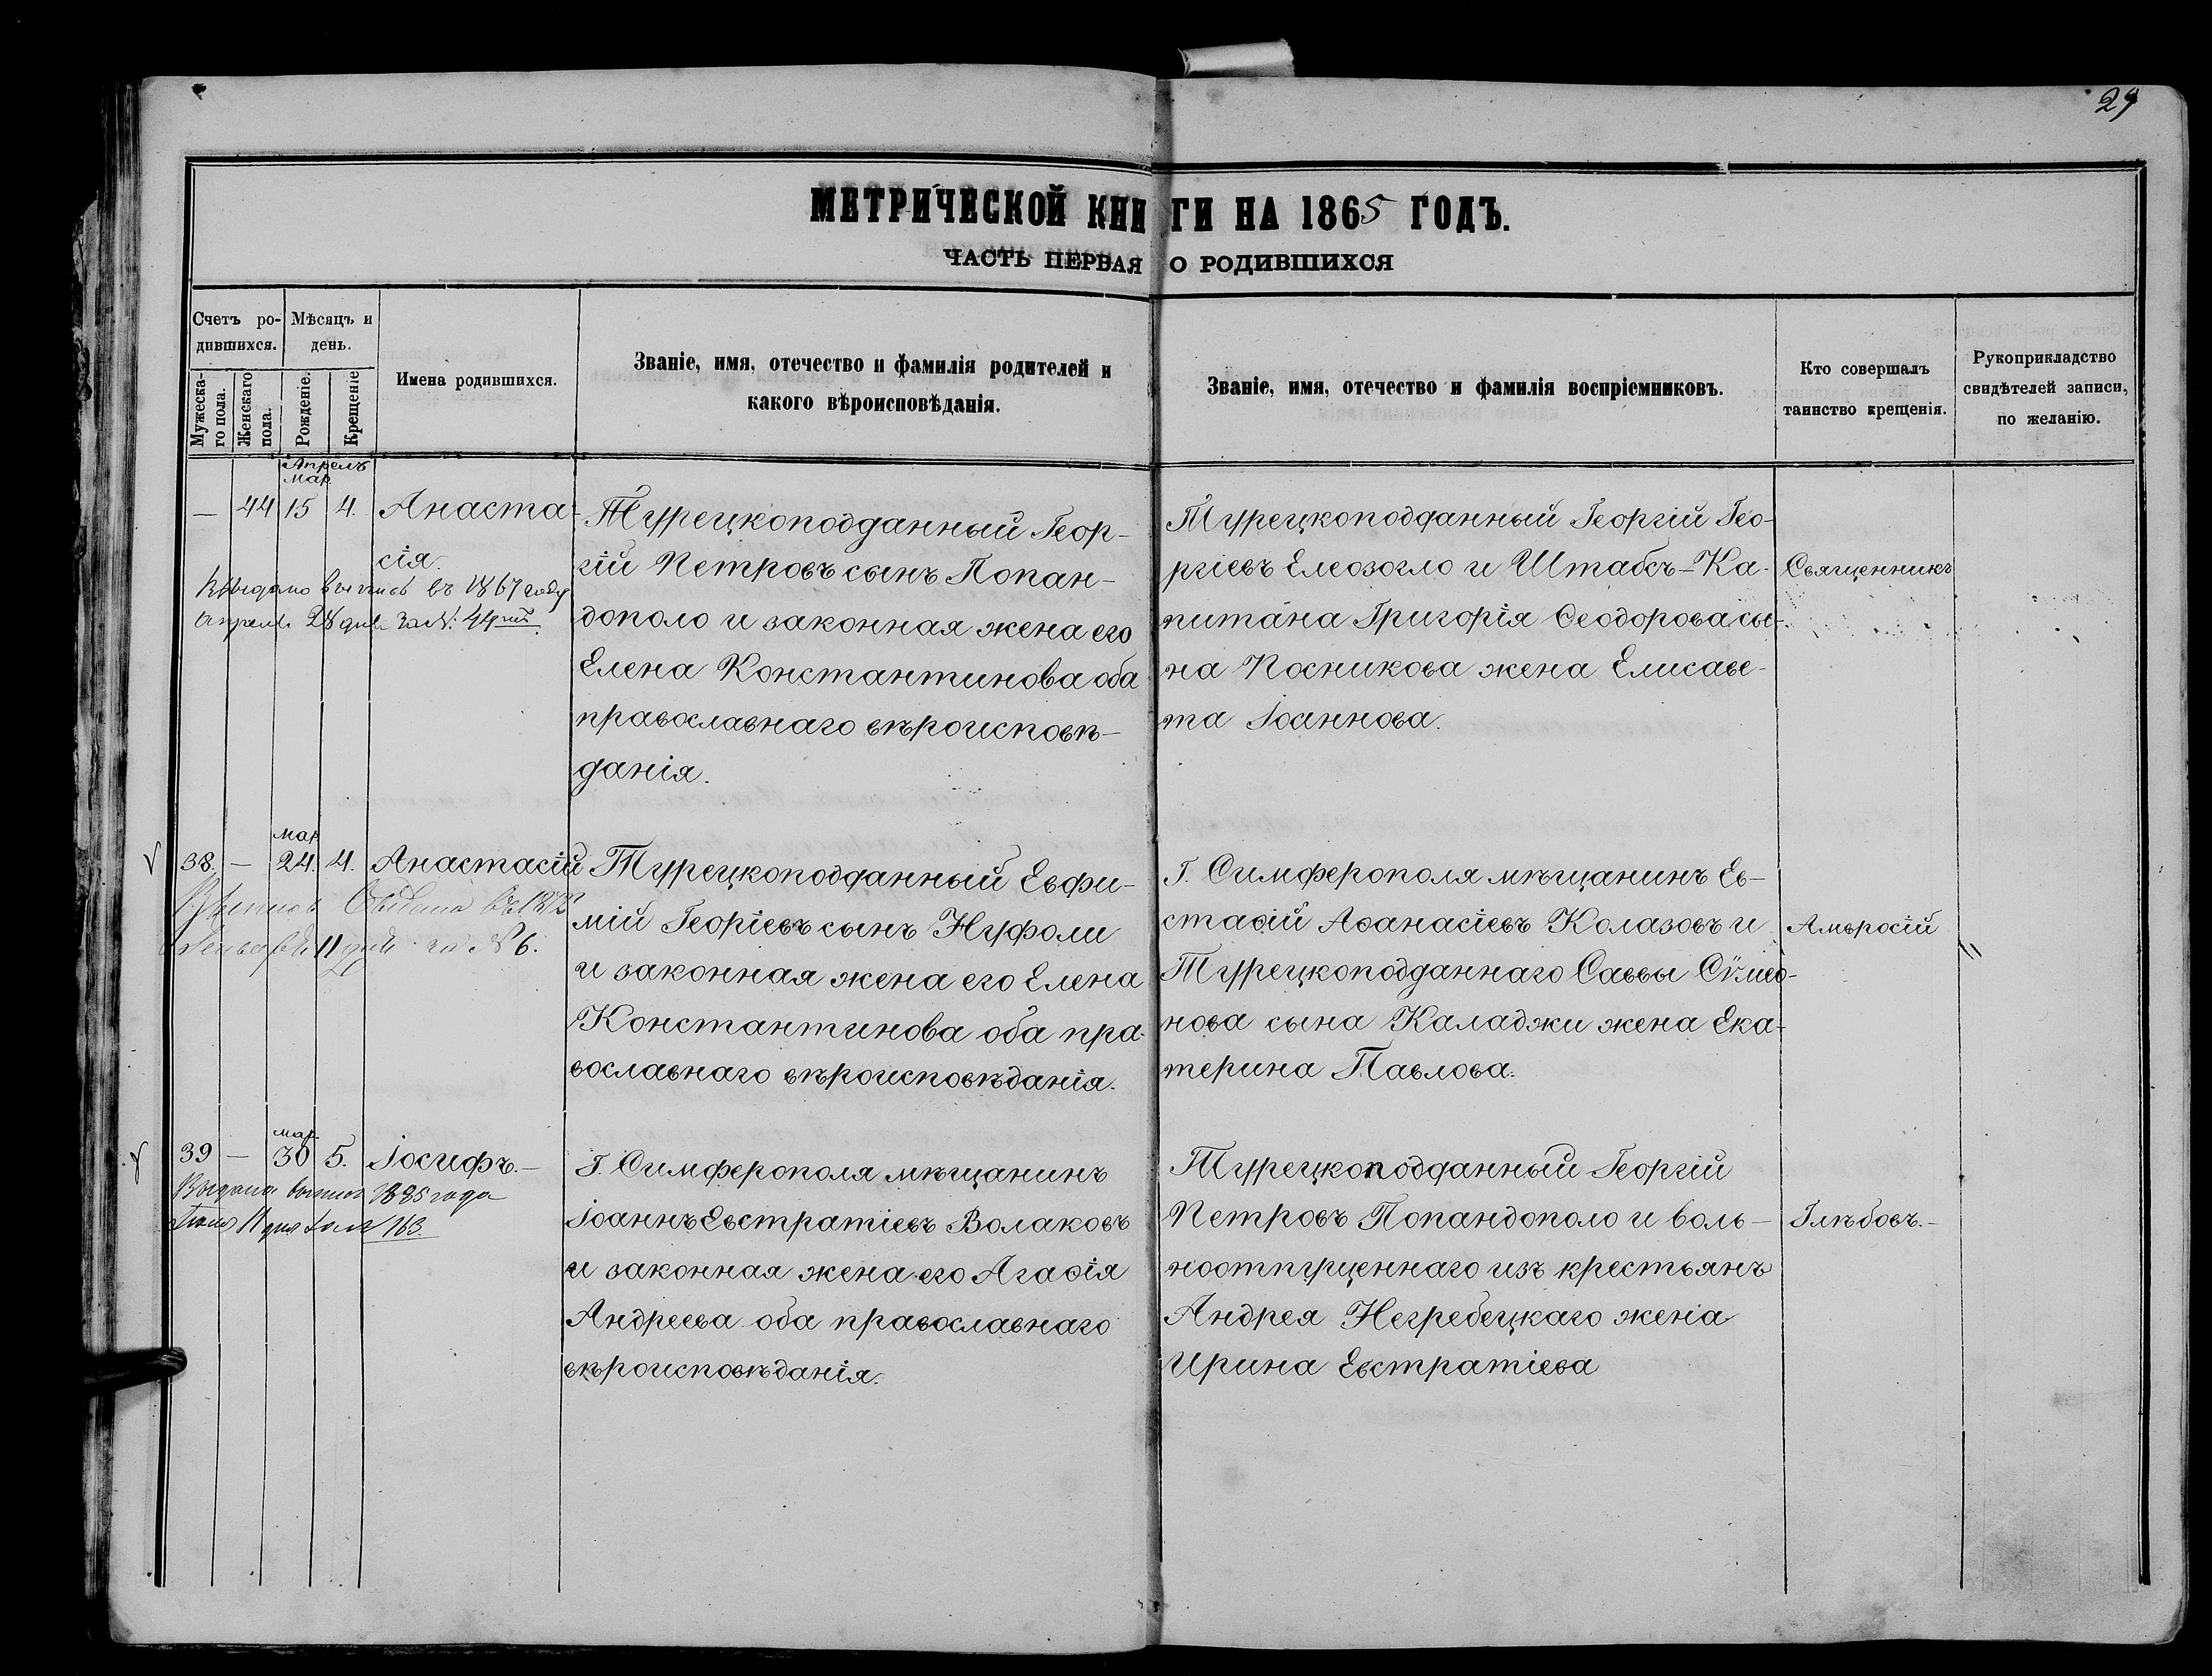 29
МЕТРИЧЕСКОЙ КНИГИ НА 1865 ГОДЪ.
ЧАСТЬ ПЕРВАЯ О РОДИВШИХСЯ
Счетъ ро-
дившихся.
Мѣсяцъ и
день.
Мужеска-
го пола.
Женскаго
пола.
Рожденіе.
Крещеніе
Имена родившихся.
Званіе, имя, отечество и фамилія родителей и
какого вѣроисповѣданія.
Званіе, имя, отечество и фамилія воспріемниковъ.
Кто совершалъ
таинство крещенія.
Рукоприкладство
свидѣтелей записи,
по желанію.
Апрель
Мар.
— 44 15 4. Анаста-
сія.
въ 1867 году
28 44
Турецкоподданный Геор-
гій Петровъ сынъ Попан-
дополо и законная жена его
Елена Константинова оба
православнаго вѣроисповѣ-
данія.
Турецкоподданный Георгій Гео-
ргіевъ Елеозогло и Штабсъ-Ка-
питана Григорія Ѳеодорова сы-
на Посникова жена Елисаве-
та Іоаннова.
Священникъ
Мар
38. — 24. 4. Анастасій
11 № 6.
Турецкоподданный Евфи-
мій Георіевъ сынъ Нуфоли
и законная жена его Елена
Константинова оба пра-
вославнаго вѣроисповѣданія.
Г. Симферополя мѣщанинъ Ев-
стаѳій Аѳанасіевъ Колазовъ и
Турецкоподданнаго Саввы Сѵмео-
нова сына Каладжи жена Ека-
терина Павлова.
Амвросій
"
мар.
39 — 30 5. Іосифъ.—
Выдана 1885 года
11 дня 163.
Г. Симферополя мѣщанинъ
Іоаннъ Евстратіевъ Волаковъ
и законная жена его Агаѳія
Андреева оба православнаго
вѣроисповѣданія.
Турецкоподданный Георгій
Петровъ Попандополо и воль-
ноотпущеннаго изъ крестьянъ
Андрея Негребецкаго жена
Ирина Евстратіева
Глѣбовъ.—